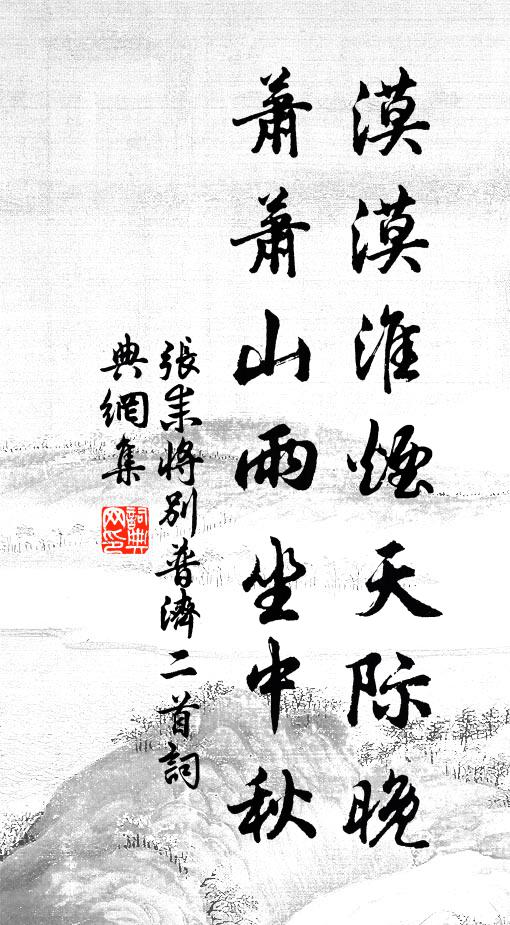 漠漠淮煙天际晚
蕭蕭山雨坐中秋
張耒將別普濟二首詞
典網集
詞典网印